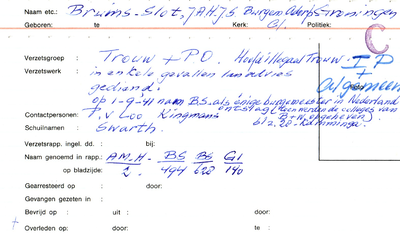 Naam etc.: Bruins-Slot, JAHJS Burgem Adorp Groningen
Geboren: te Kerk: Gl Politiek:
C
Verzetsgroep : Trouw + PO. Hoofd illegaal Trouw. I P
Verzetswerk : in enkele gevallen hun advies +
gediend. Algemeen
op 1-9-41 nam BS. als énige burgemeester in Nederland
ontslag (toen werden de colleges van
Contactpersonen: F. v Loo Kingmans B+W opgeheven)
Schuilnamen : Swarth. blz. 28-Kamminga.
Verzetsrapp. ingel. dd. : bij:
Naam genoemd in rapp.: AM.H. BS BS Gl
op bladzijde: 2. 494 628 140
Gearresteerd op : door:
Gevangen gezeten in :
Bevrijd op : uit : door:
Overleden op: : door: te :